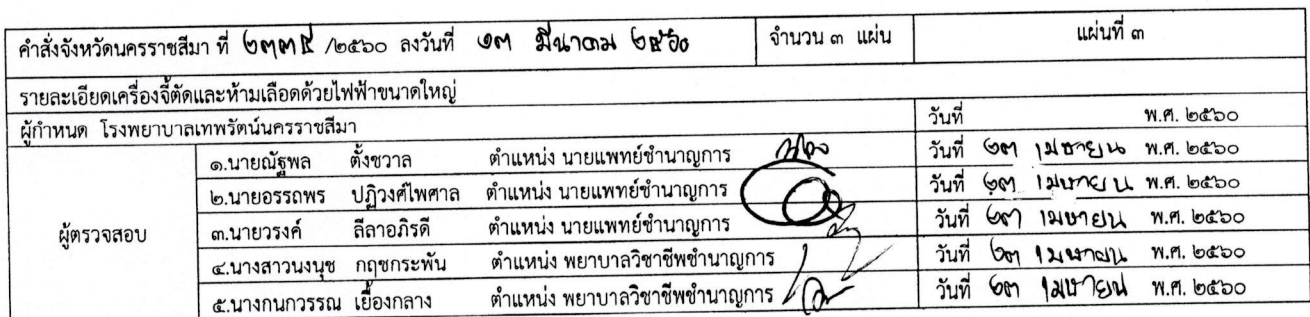 คำสั่งจังหวัดนครราชสีมา ที่ ๒๓๓๕ /๒๕๖๐ ลงวันที่ ๑๓ มีนาคม ๒๕๖๐ จำนวน ๓ แผ่น แผ่นที่ ๓
รายละเอียดเครื่องจี้ตัดและห้ามเลือดด้วยไฟฟ้าขนาดใหญ่
ผู้กำหนด โรงพยาบาลเทพรัตน์นครราชสีมา วันที่ พ.ศ. ๒๕๖๐
๑.นายณัฐพล ตั้งชวาล ตำแหน่ง นายแพทย์ชำนาญการ วันที่ ๒๓ เมษายน พ.ศ. ๒๕๖๐
๒.นายอรรถพร ปฏิวงศ์ไพศาล ตำแหน่ง นายแพทย์ชำนาญการ วันที่ ๒๓ เมษายน พ.ศ. ๒๕๖๐
ผู้ตรวจสอบ ๓.นายวรงค์ ลีลาอภิรดี ตำแหน่ง นายแพทย์ชำนาญการ วันที่ ๒๓ เมษายน พ.ศ. ๒๕๖๐
๔.นางสาวนงนุช กฤชกระพัน ตำแหน่ง พยาบาลวิชาชีพชำนาญการ วันที่ ๒๓ เมษายน พ.ศ. ๒๕๖๐
๕.นางกนกวรรณ เยื้องกลาง ตำแหน่ง พยาบาลวิชาชีพชำนาญการ วันที่ ๒๓ เมษายน พ.ศ. ๒๕๖๐